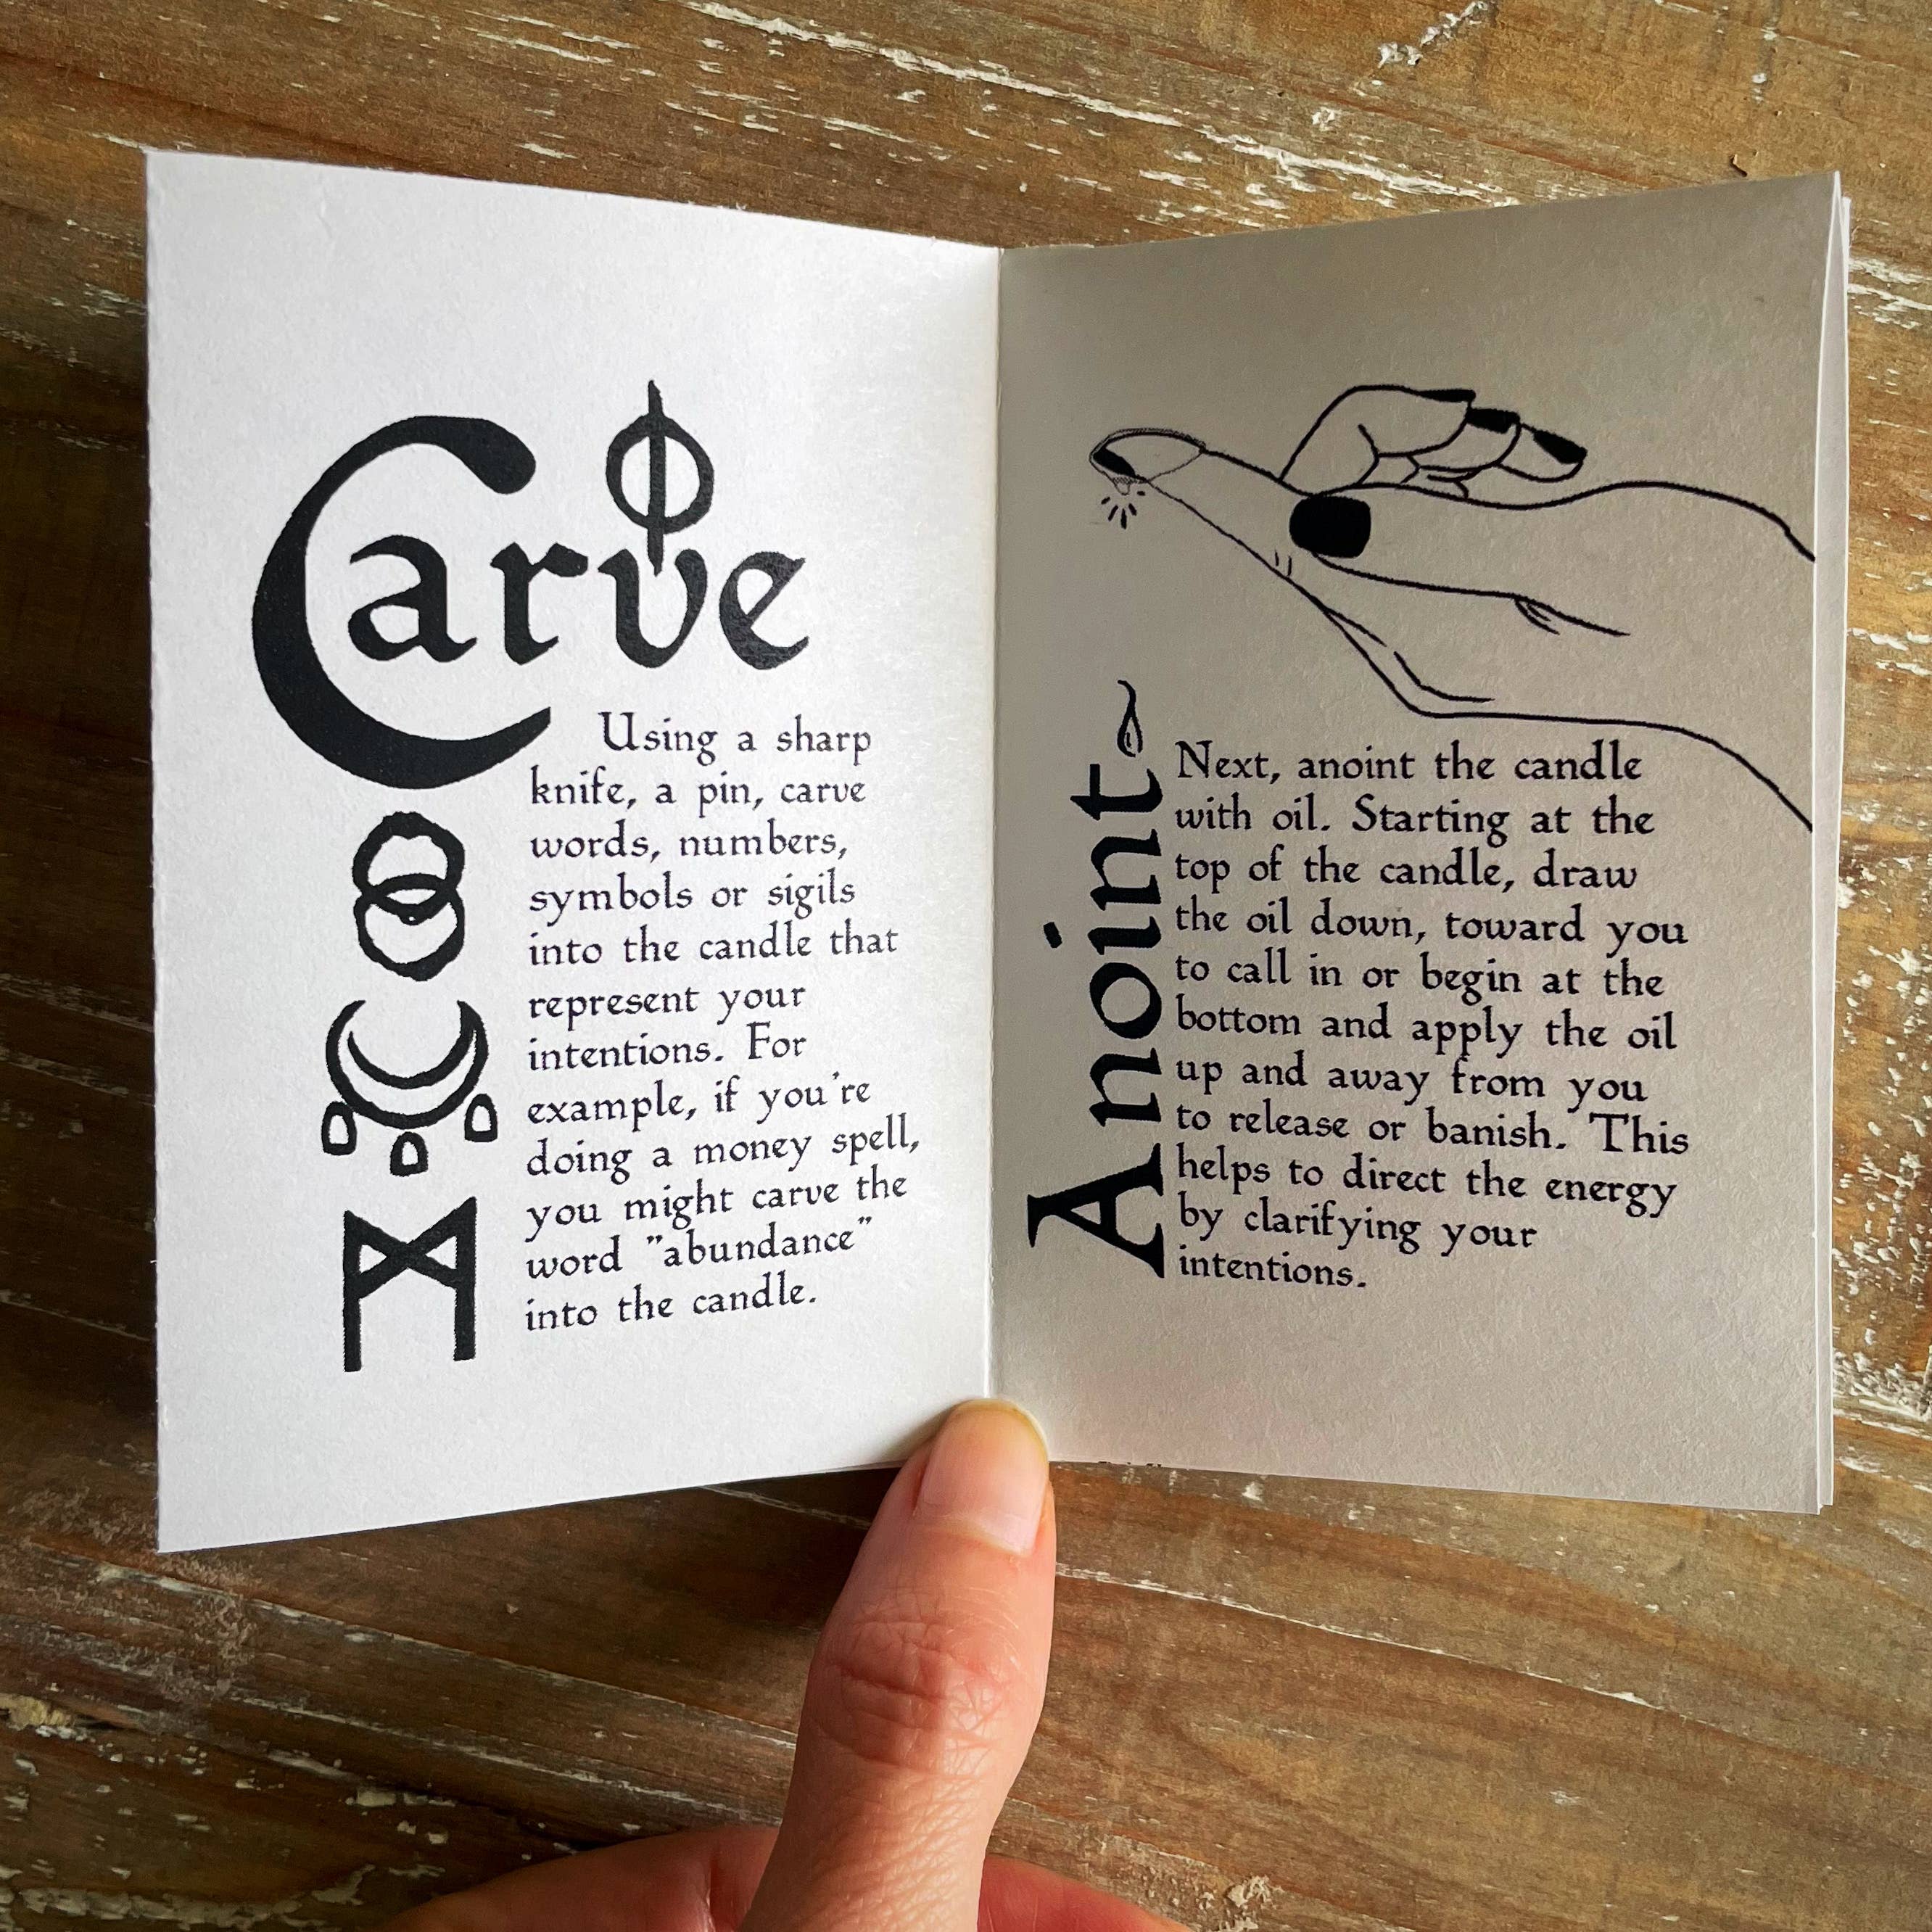 Carve
Using a sharp
knife, a pin, carve
words, numbers,
symbols or sigils
into the candle that
represent your
intentions. For
example, if you're
doing a money spell,
you might carve the
word "abundance"
into the candle.
Anoint
Next, anoint the candle
with oil. Starting at the
top of the candle, draw
the oil down, toward you
to call in or begin at the
bottom and apply the oil
up and away from you
to release or banish. This
helps to direct the energy
by clarifying your
intentions.